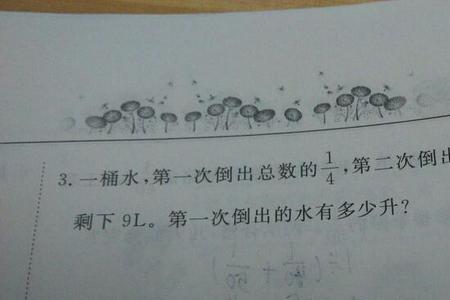 3. 一桶水,第一次倒出总数的1/4,第二次倒出
剩下 9L。第一次倒出的水有多少升?